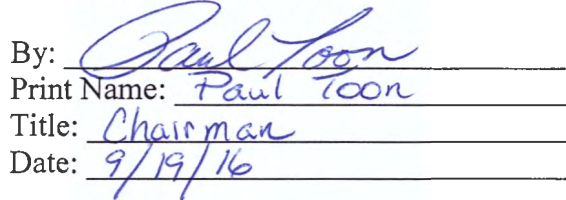 By: Paul Toon
Print Name: Paul Toon
Title: Chairman
Date: 9/19/16